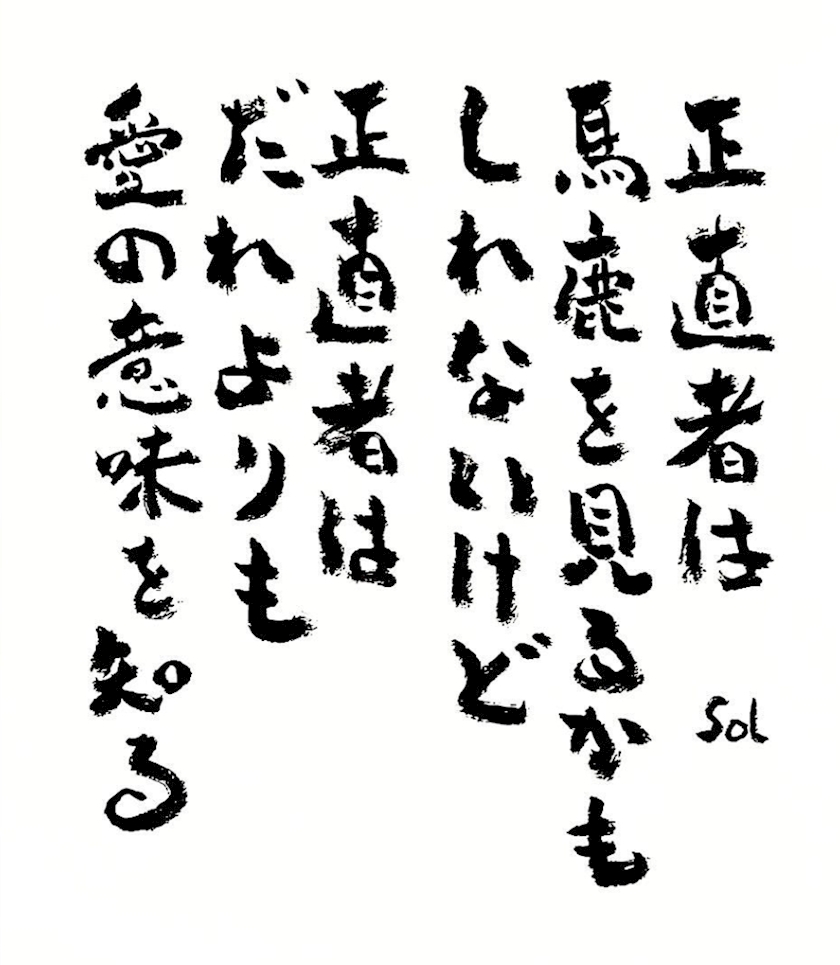 正直者は
馬鹿を見るかも
しれないけど
正直者は
だれよりも
愛の意味を知る
Sol